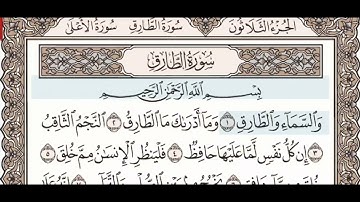 الجُزْءُ الثَّلَاثُونَ سُورَةُ الطَّارِقِ سُورَةُ الأَعْلَى
سُورَةُ الطَّارِقِ
بِسْمِ اللَّهِ الرَّحْمَٰنِ الرَّحِيمِ
وَالسَّمَاءِ وَالطَّارِقِ ١ وَمَا أَدْرَىٰكَ مَا الطَّارِقُ ٢ النَّجْمُ الثَّاقِبُ
٣ إِن كُلُّ نَفْسٍ لَّمَّا عَلَيْهَا حَافِظٌ ٤ فَلْيَنظُرِ الْإِنسَانُ مِمَّ خُلِقَ ٥